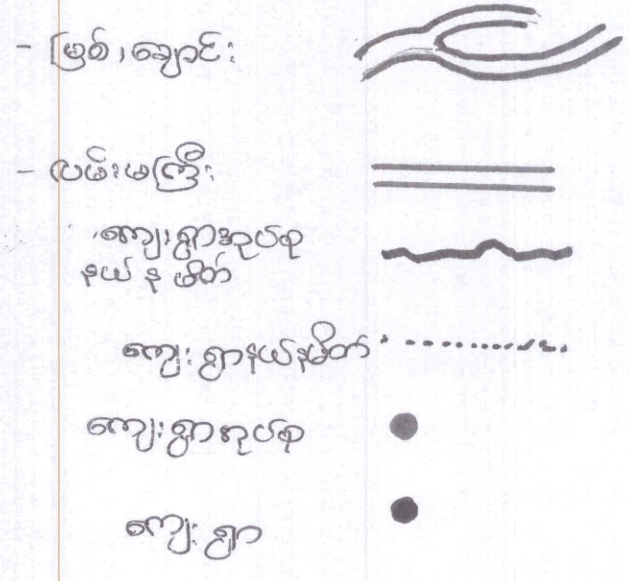 - မြစ်၊ ချောင်း
- လမ်းမကြီး
ကျေးရွာအုပ်စု
နယ်နမိတ်
ကျေးရွာနယ်နမိတ်
ကျေးရွာအုပ်စု
ကျေးရွာ